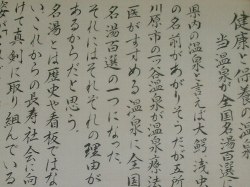 健康と
当温泉が全国名湯百選
県内の温泉と言えば大鰐、浅虫
の名前があがりそうだが五所
川原市の一ッ谷温泉が温泉療法
医がすすめる温泉に全国
名湯百選の一つになった。
それにはそれぞれの理由が
あるからだと思う。
名湯とは歴史や看板ではな
い、これからの長寿社会に向
けて真剣に取り組んでいる